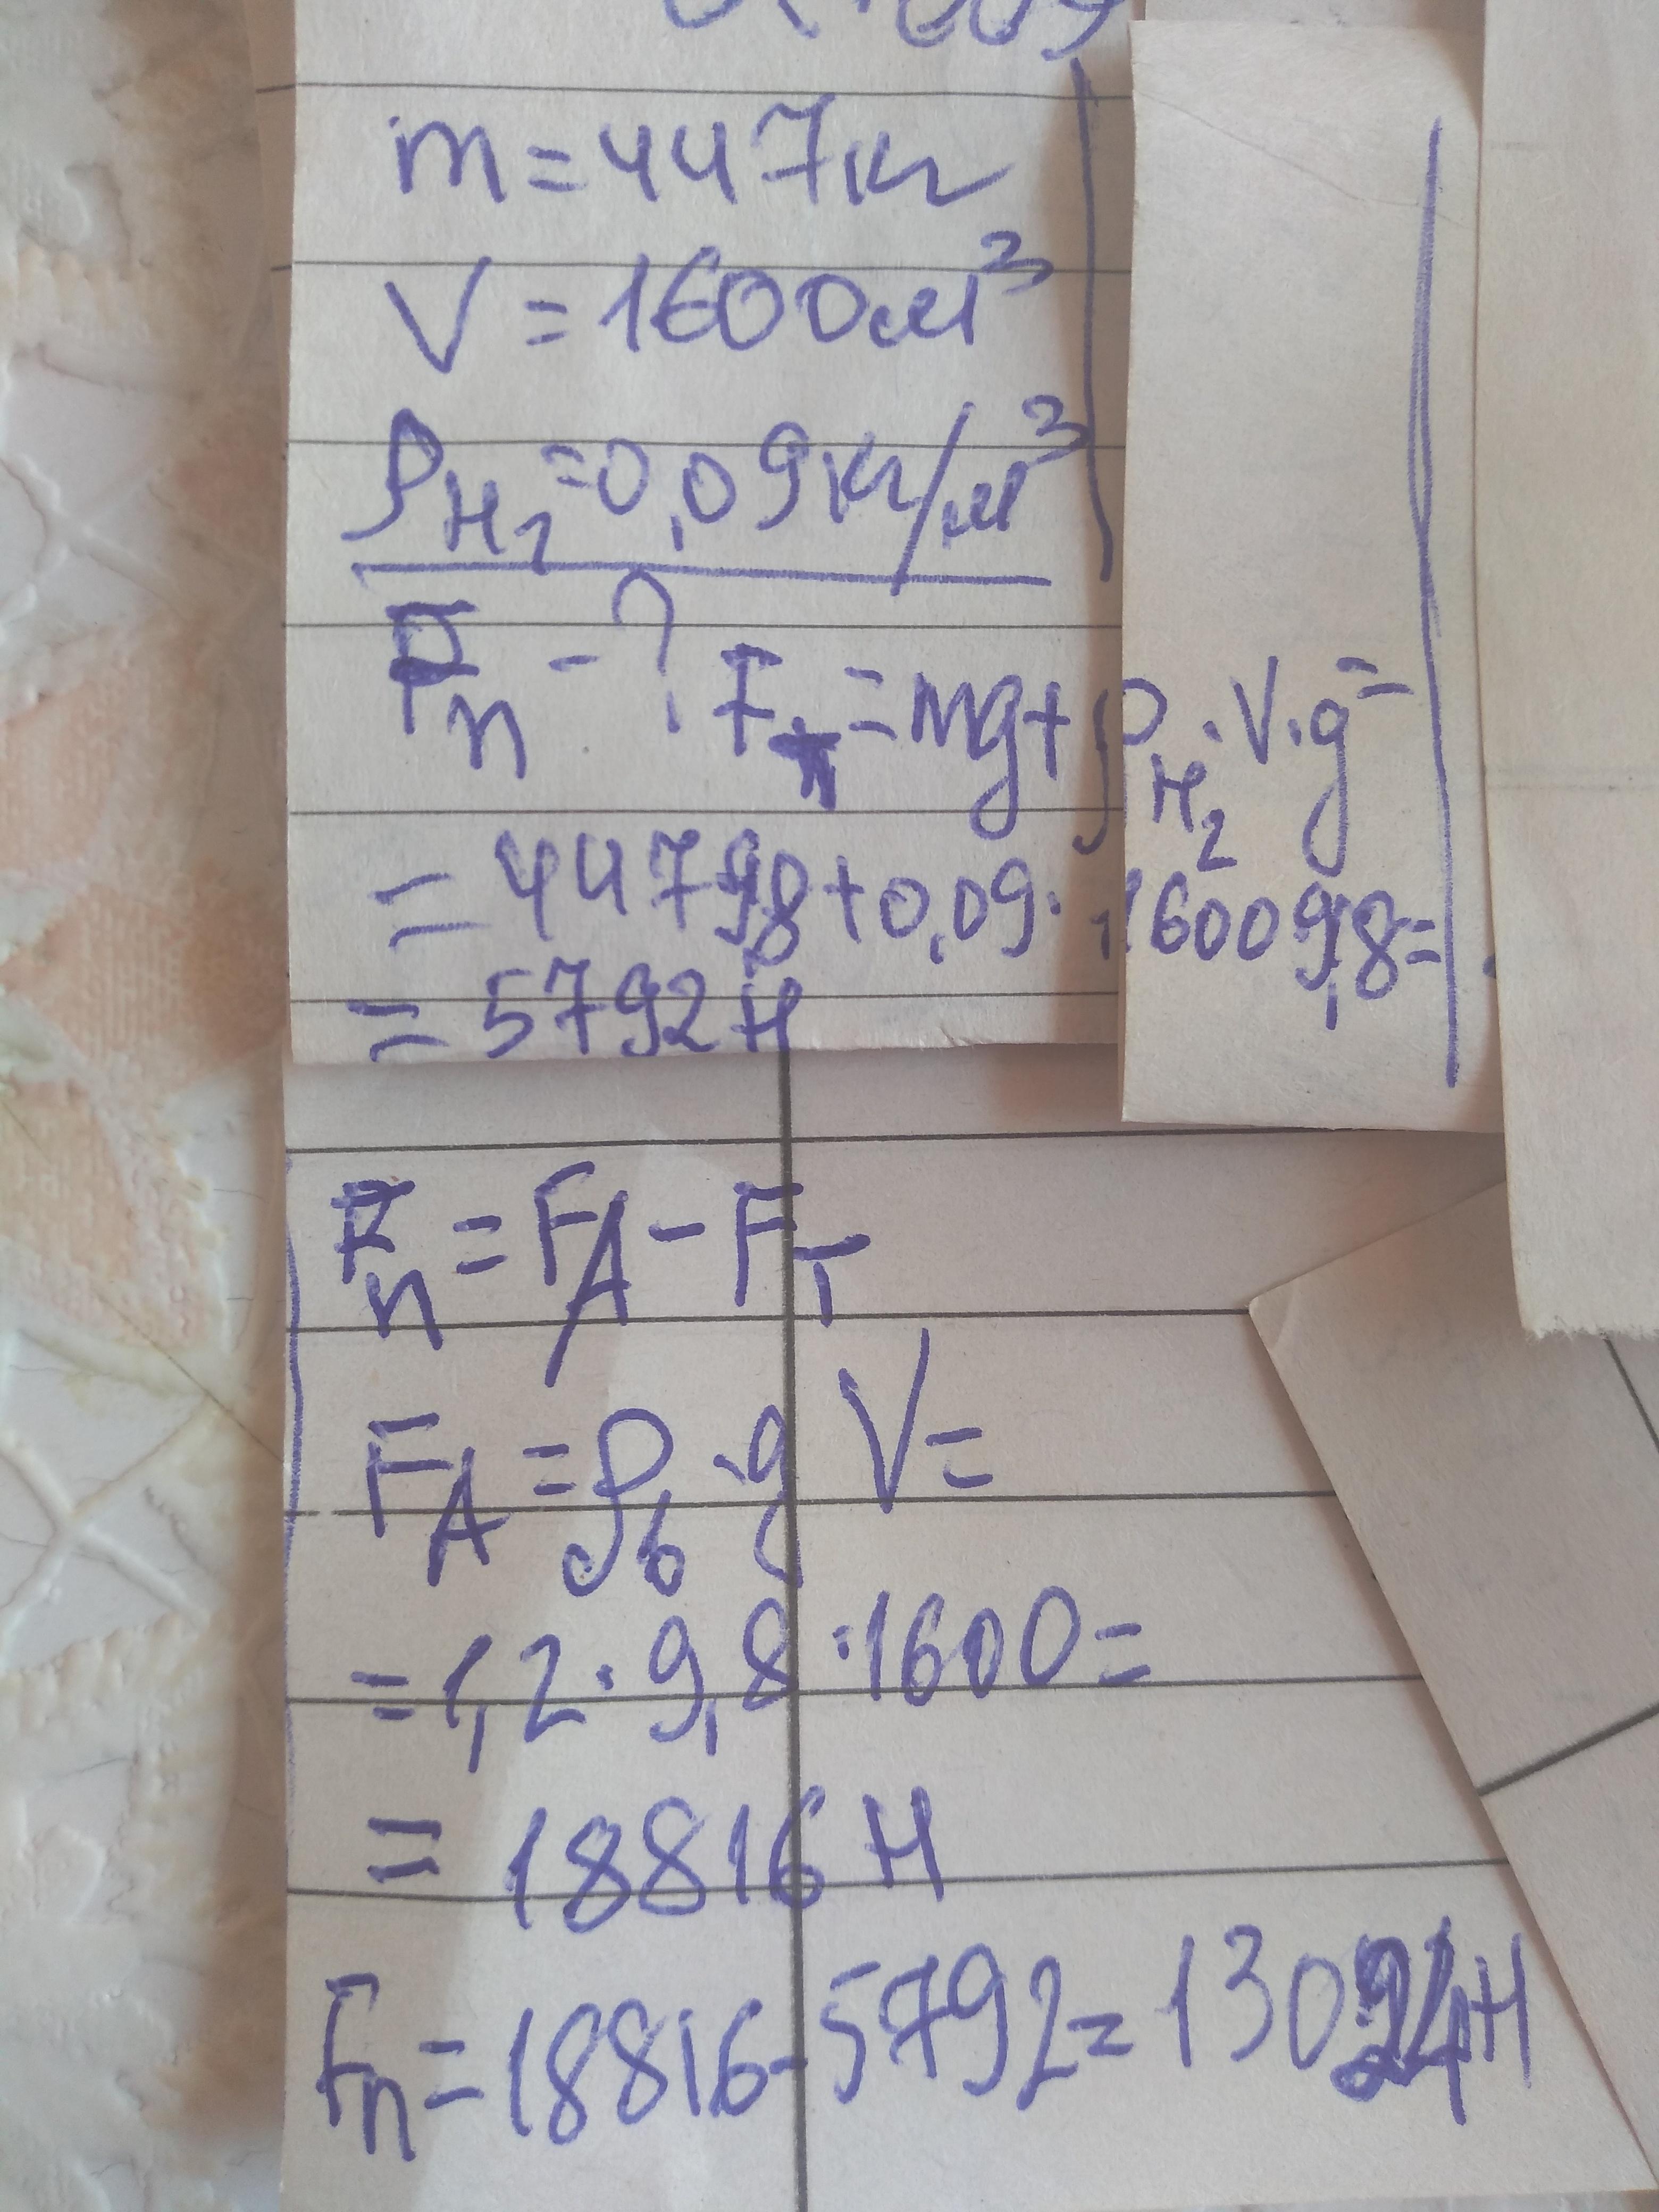 m = 447 кг
V = 1600 м³
ρH₂ = 0,09 кг/м³
Fп - ?
Fт = mg + ρH₂ · V · g =
= 447 9,8 + 0,09 · 1600 9,8 =
= 5792 Н
Fп = FA - FT
FA = ρв · g V =
= 1,2 · 9,8 · 1600 =
= 18816 Н
Fп = 18816 - 5792 = 13024 Н